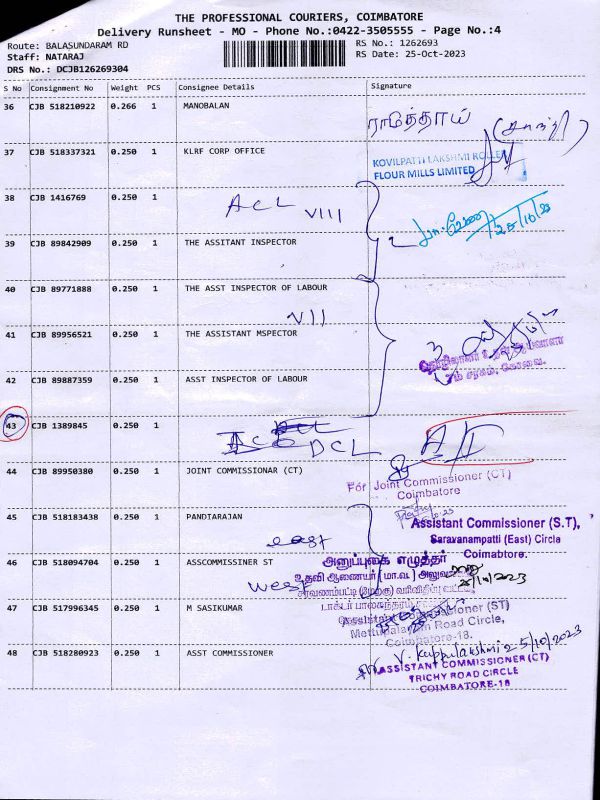 THE PROFESSIONAL COURIERS, COIMBATORE
Delivery Runsheet - MO - Phone No.:0422-3505555 - Page No.:4
Route: BALASUNDARAM RD
RS No.: 1262693
Staff: NATARAJ
RS Date: 25-Oct-2023
DRS No.: DCJB126269304
S No Consignment No Weight PCS Consignee Details Signature
36 CJB 518210922 0.266 1 MANOBALAN
37 CJB 518337321 0.250 1 KLRF CORP OFFICE
KOVILPATTI LAKSHMI ROLLER
FLOUR MILLS LIMITED
38 CJB 1416769 0.250 1 ACL VIII
25/10/23
39 CJB 89842909 0.250 1 THE ASSITANT INSPECTOR
40 CJB 89771888 0.250 1 THE ASST INSPECTOR OF LABOUR
VII
41 CJB 89956521 0.250 1 THE ASSISTANT MSPECTOR
42 CJB 89887359 0.250 1 ASST INSPECTOR OF LABOUR
43 CJB 1389845 0.250 1
DCL
44 CJB 89950380 0.250 1 JOINT COMMISSIONAR (CT)
For Joint Commissioner (CT)
Coimbatore
45 CJB 518183438 0.250 1 PANDTARAJAN
east
Assistant Commissioner (S.T),
Saravanampatti (East) Circle
Coimabtore.
46 CJB 518094704 0.250 1 ASSCOMMISSINER ST
west
அனுப்புகை எழுத்தர்
உதவி ஆணையர் (மா.வ.)
25/10/2023
47 CJB 517996345 1 M SASIKUMAR
Assistant Commissioner (ST)
Mettupalayam Road Circle,
Coimbatore-18.
48 CJB 518280923 0.250 1 ASST COMMISSIONER
V. Kuppulakshmi 25/10/2023
ASSISTANT COMMISSIONER (CT)
TRICHY ROAD CIRCLE
COIMBATORE-18